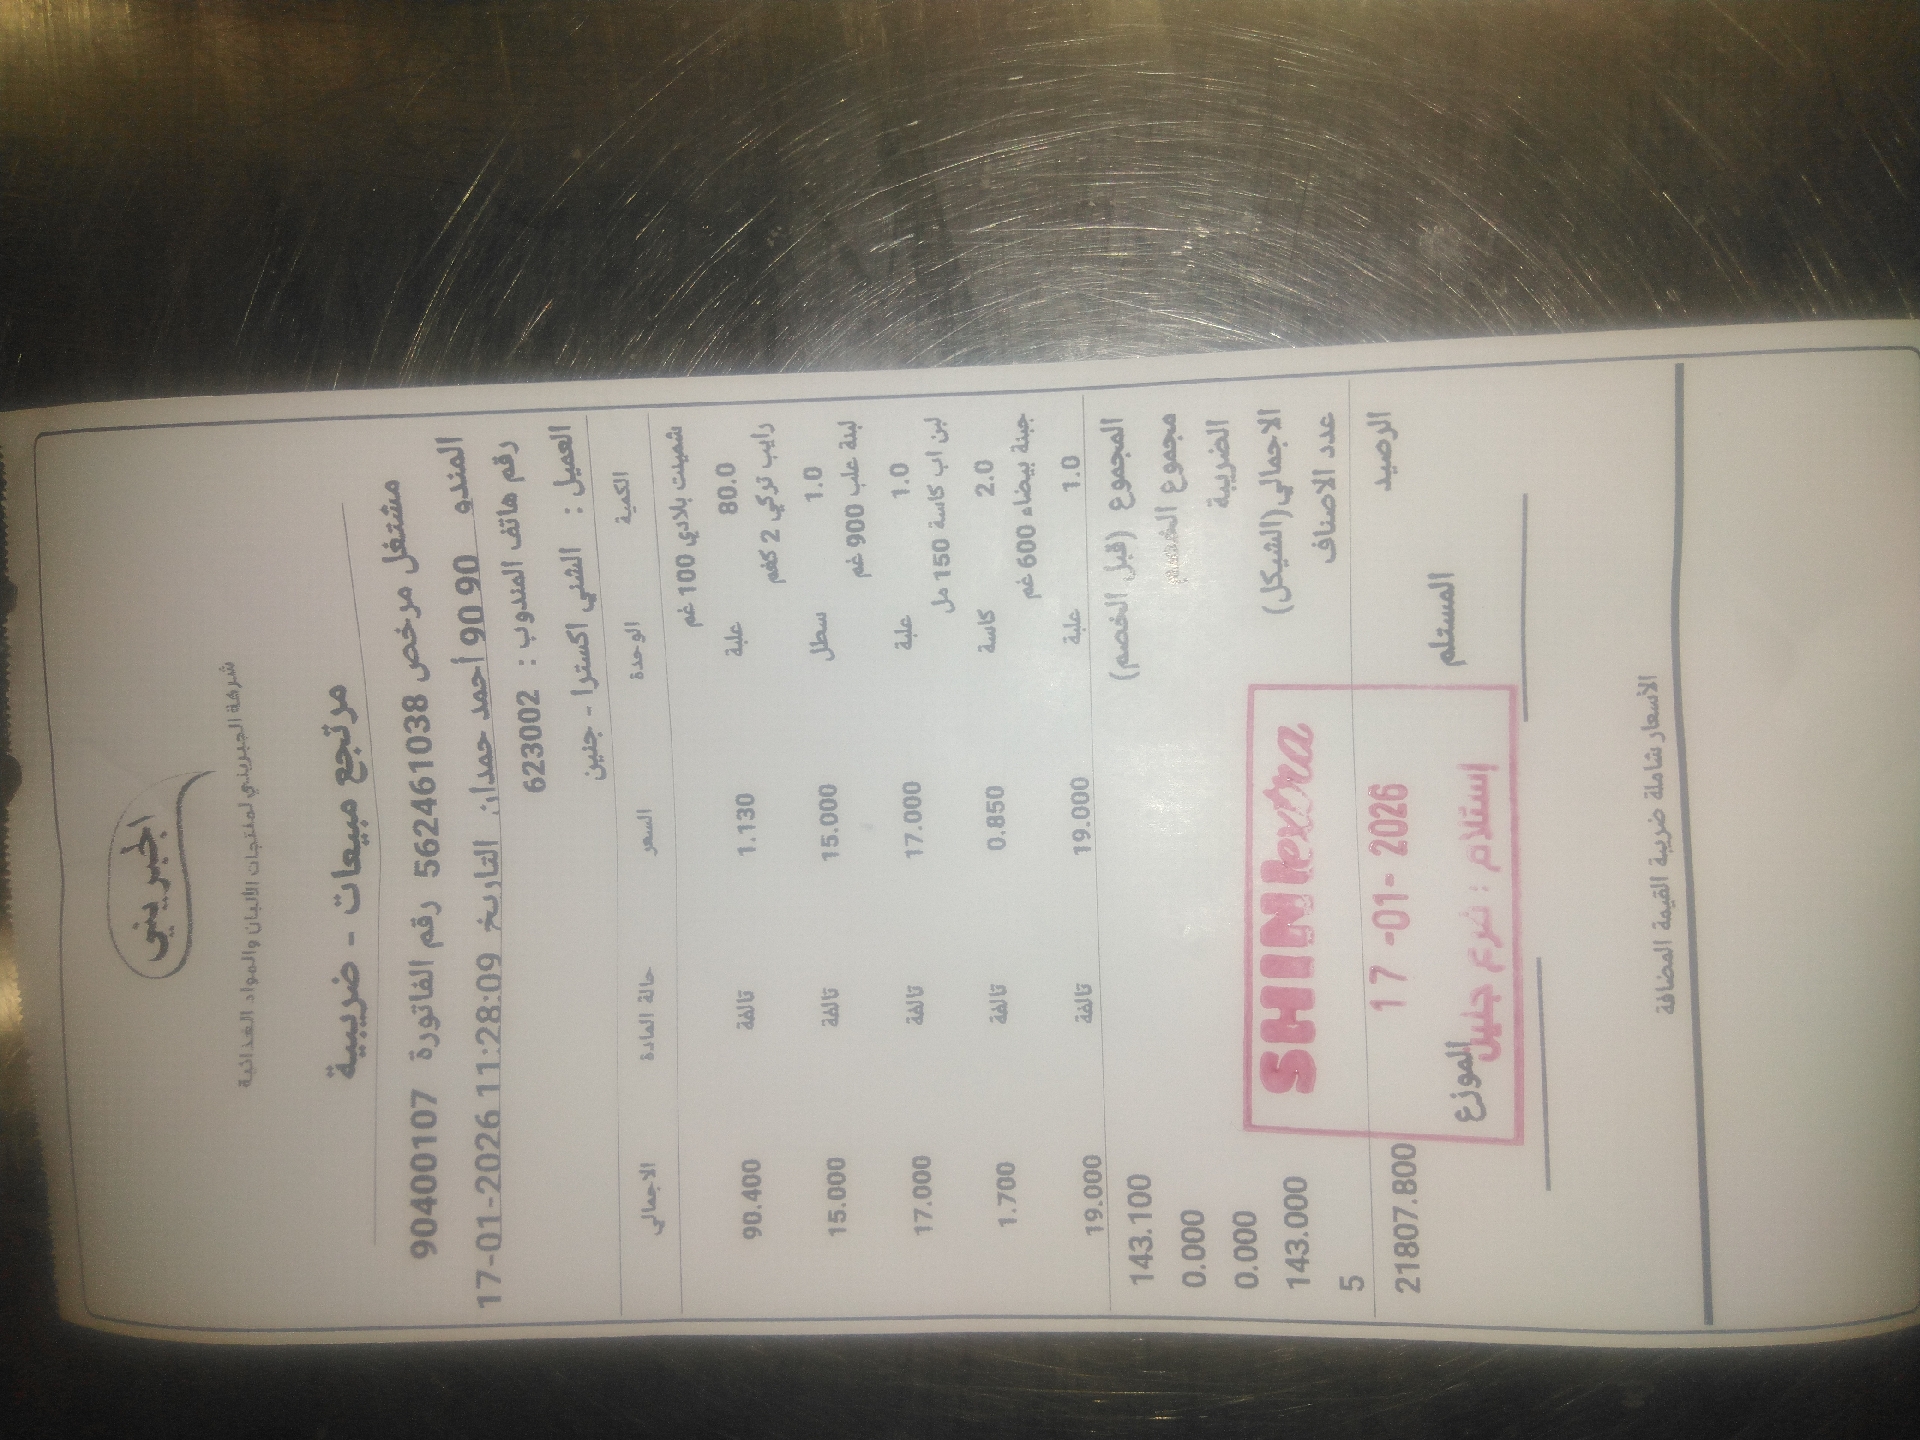 الجبريني
شركة الجبريني لمنتجات الالبان والمواد الغذائية
مرتجع مبيعات - ضريبية
مشتغل مرخص 562461038 رقم الفاتورة 90400107
المندو 90 90 أحمد حمدان: التاريخ 17-01-2026 11:28:09
رقم هاتف المندوب : 623002
العميل : الشني اكسترا - جنين
الكمية الوحدة السعر حالة المادة الاجمالي
شمينت بلادي 100 غم
80.0 علبة 1.130 تالفة 90.400
رايب تركي 2 كغم
1.0 سطل 15.000 تالفة 15.000
لبنة علب 900 غم
1.0 علبة 17.000 تالفة 17.000
لبن اب كاسة 150 مل
2.0 كاسة 0.850 تالفة 1.700
جبنة بيضاء 600 غم
1.0 علبة 19.000 تالفة 19.000
المجموع (قبل الخصم) 143.100
مجموع الخصم 0.000
الضريبة 0.000
الاجمالي(الشيكل) 143.000
عدد الاصناف 5
الرصيد 21807.800
SHINI extra
17 -01- 2026
إستلام : فرع جنين
المستلم الموزع
الأسعار شاملة ضريبة القيمة المضافة